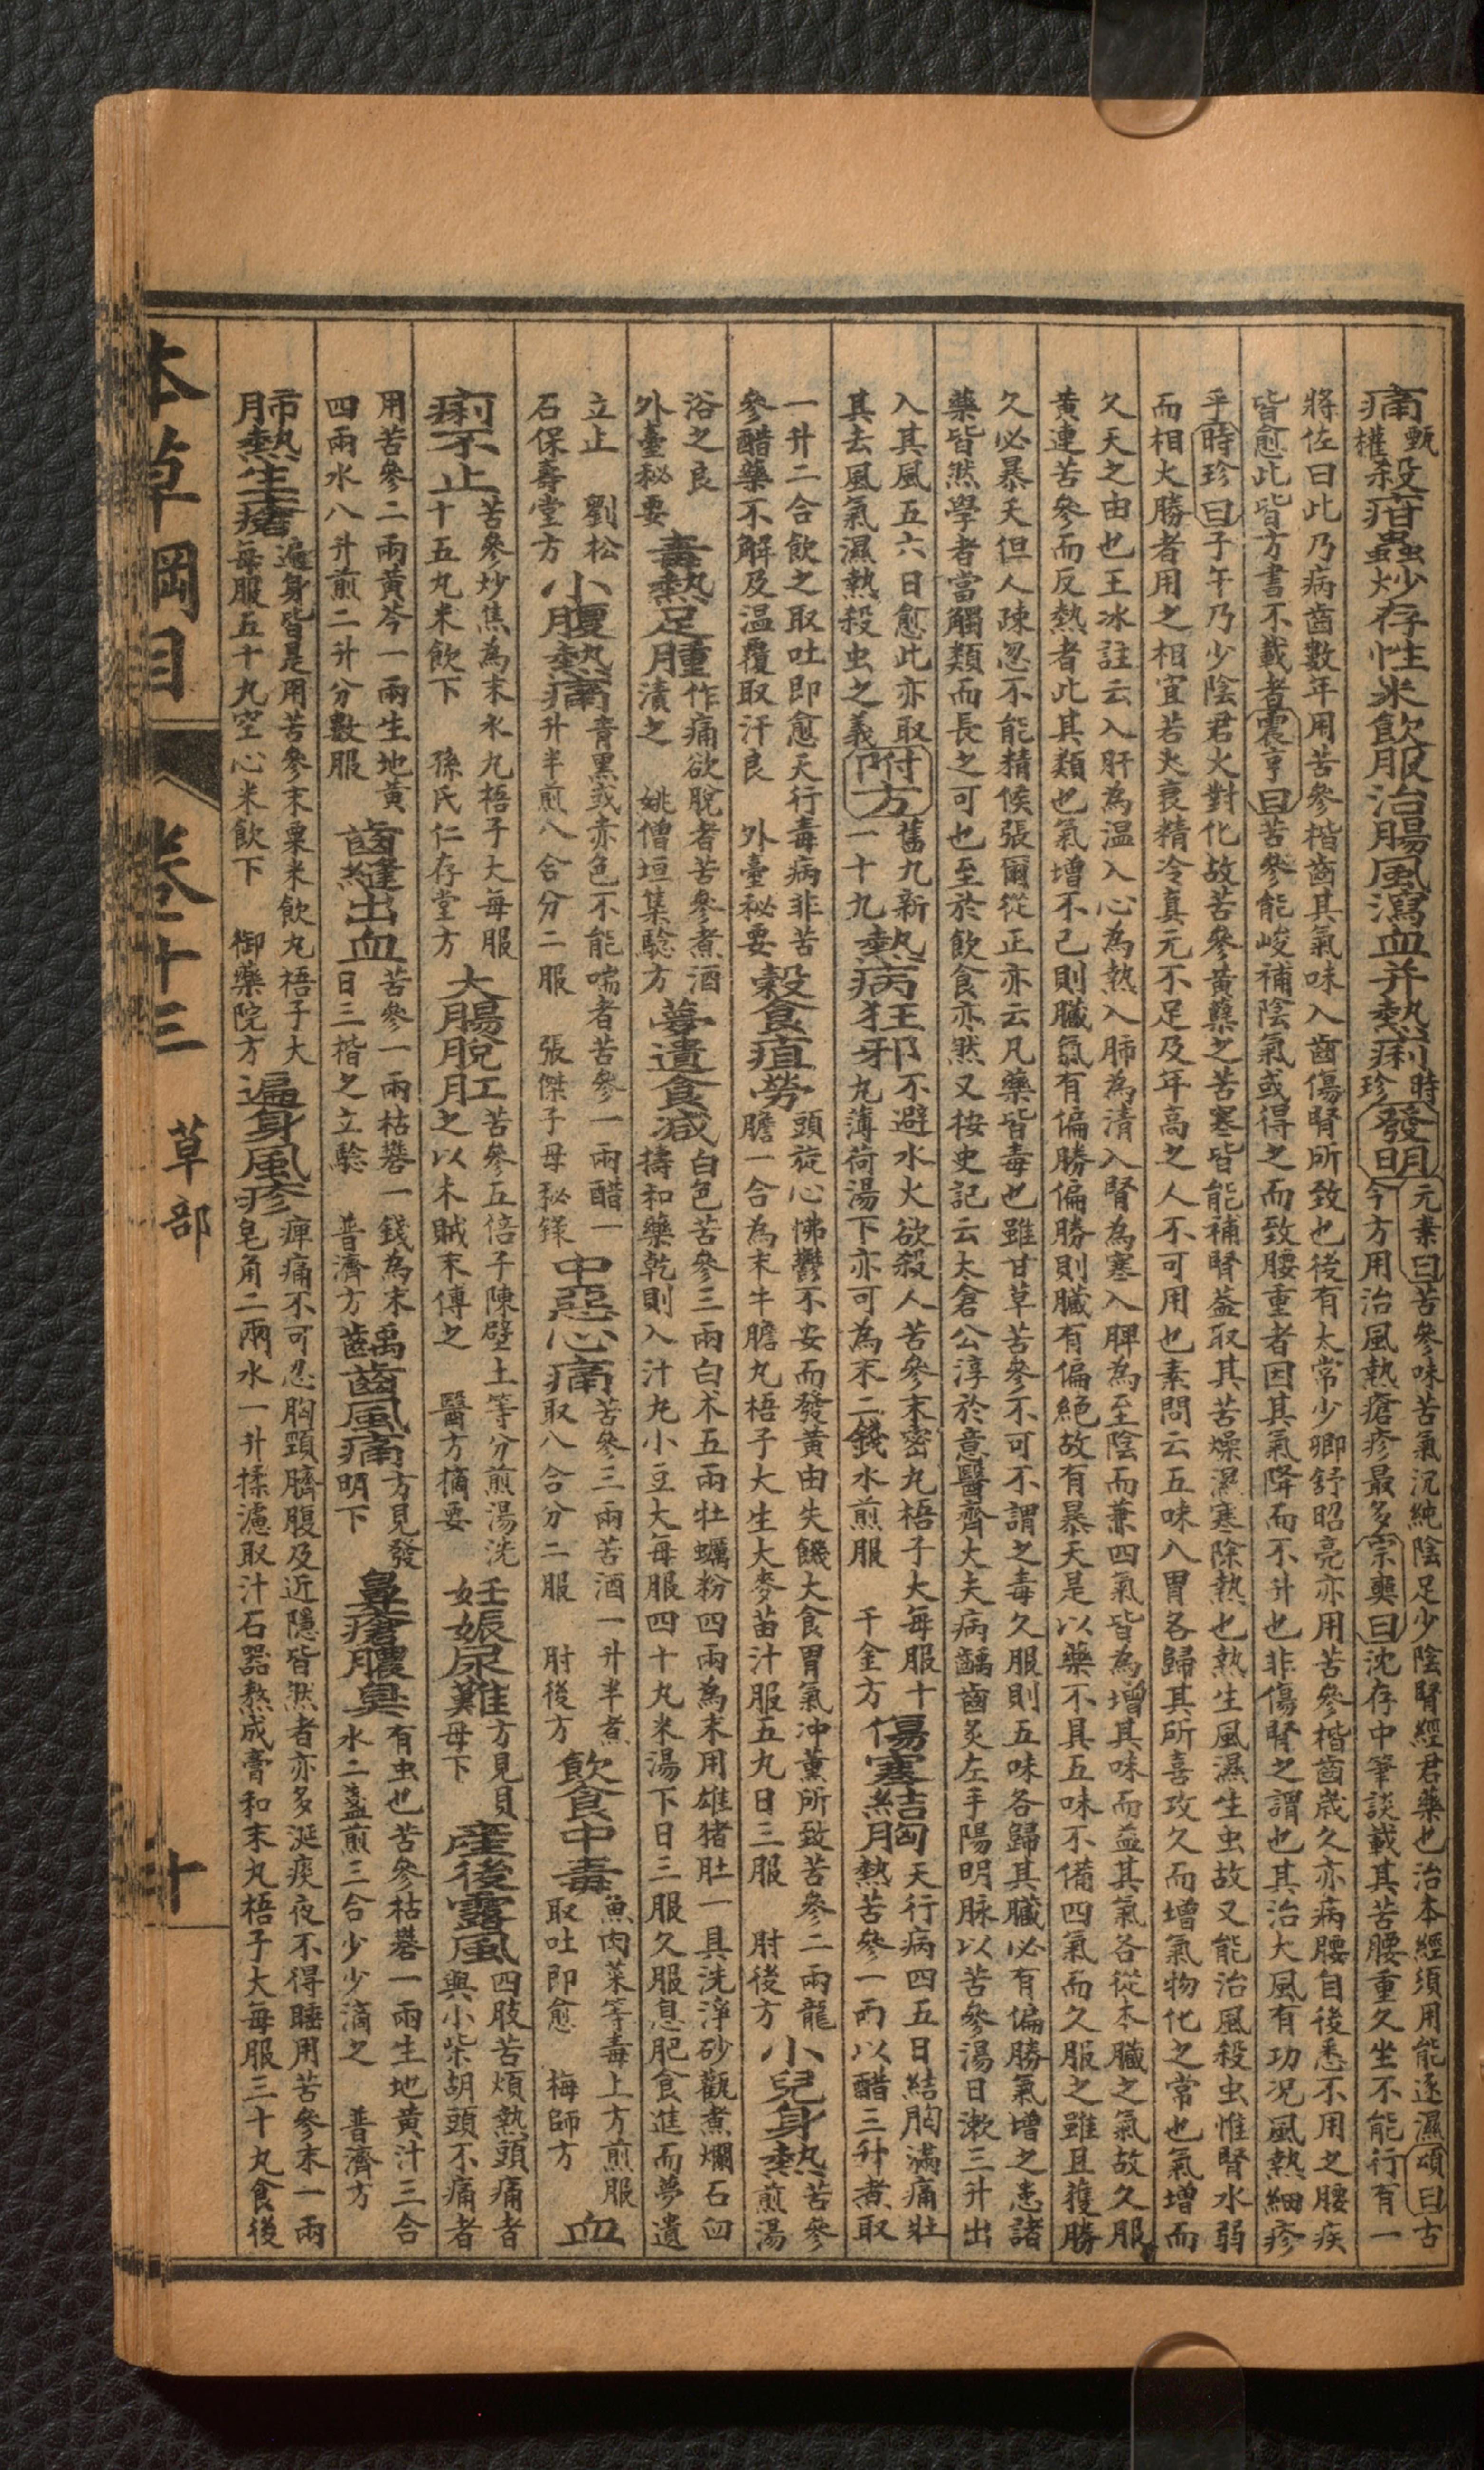 痛甄權殺疳蟲炒存性米飲服治腸風瀉血并熱痢時珍發明元素曰苦參味苦氣沉純陰足少陰腎經君藥也治本經須用能逐濕頌曰古
今方用治風熱瘡疹最多宗奭曰沈存中筆談載其苦腰重久坐不能行有一
將佐曰此乃病齒數年用苦參揩齒其氣味入齒傷腎所致也後有太常少卿舒昭亮亦用苦參揩齒歲久亦病腰自後悉不用之腰疾
皆愈此皆方書不載者震亨曰苦參能峻補陰氣或得之而致腰重者因其氣降而不升也非傷腎之謂也其治大風有功况風熱細疹
乎時珍曰子午乃少陰君火對化故苦參黃蘗之苦寒皆能補腎蓋取其苦燥濕寒除熱也熱生風濕生虫故又能治風殺虫惟腎水弱
而相火勝者用之相宜若火衰精冷真元不足及年高之人不可用也素問云五味入胃各歸其所喜攻久而增氣物化之常也氣增而
久夭之由也王冰註云入肝為温入心為熱入肺為清入腎為寒入脾為至陰而兼四氣皆為增其味而益其氣各從本臟之氣故久服
黃連苦參而反熱者此其類也氣增不已則臟氣有偏勝偏勝則臟有偏絕故有暴夭是以藥不具五味不備四氣而久服之雖且獲勝
久必暴夭但人疎忽不能精候張爾從正亦云凡藥皆毒也雖甘草苦參不可不謂之毒久服則五味各歸其臟必有偏勝氣增之患諸
藥皆然學者當觸類而長之可也至於飲食亦然又按史記云太倉公淳於意醫齊大夫病齲齒炙左手陽明脉以苦參湯日漱三升出
入其風五六日愈此亦取
其去風氣濕熱殺虫之義附方舊九新一十九熱病狂邪不避水火欲殺人苦參末密丸梧子大每服十
丸薄荷湯下亦可為末二錢水煎服 千金方傷寒結胸天行病四五日結胸滿痛壯
熱苦參一兩以醋三升煮取
一升二合飲之取吐即愈天行毒病非苦
參醋藥不解及温覆取汗良 外臺秘要穀食疸勞頭旋心怫鬱不安而發黃由失饑大食胃氣冲薰所致苦參二兩龍
膽一合為末牛膽丸梧子大生大麥苗汁服五九日三服 肘後方小兒身熱苦參
煎湯
浴之良
外臺秘要毒熱足腫作痛欲脫者苦參煮酒
漬之 姚僧垣集驗方夢遺食减白色苦參三兩白朮五兩牡蠣粉四兩為末用雄猪肚一具洗淨砂罐煮爛石臼
擣和藥乾則入汁丸小豆大每服四十丸米湯下日三服久服息肥食進而夢遺
立止 劉松
石保壽堂方小腹熱痛青黑或赤色不能喘者苦參一兩醋一
升半煎八合分二服 張傑子母秘錄中惡心痛苦參三兩苦酒一升半煮
取八合分二服 肘後方飲食中毒魚肉菜等毒上方煎服
取吐即愈 梅師方血
痢不止苦參炒焦為末水九梧子大每服
十五丸米飲下 孫氏仁存堂方大腸脫肛苦參五倍子陳壁土等分煎湯洗
之以木賊末傅之 醫方摘要妊娠尿難方見貝
母下產後露風四肢苦煩熱頭痛者
與小柴胡頭不痛者
用苦參二兩黃芩一兩生地黃
四兩水八升煎二升分數服齒縫出血苦參一兩枯礬一錢為末
日三揩之立驗 普濟方齲齒風痛方見發
明下鼻瘡膿臭有虫也苦參枯礬一兩生地黃汁三合
水二盞煎三合少少滴之 普濟方
肺熱生瘡遍身皆是用苦參末粟米飲丸梧子大
每服五十丸空心米飲下 御藥院方遍身風疹痺痛不可忍胸頸臍腹及近隱皆然者亦多涎痰夜不得睡用苦參末一兩
皂角二兩水一升揉濾取汁石器熬成膏和末丸梧子大每服三十丸食後
本草綱目 卷十三 草部 十